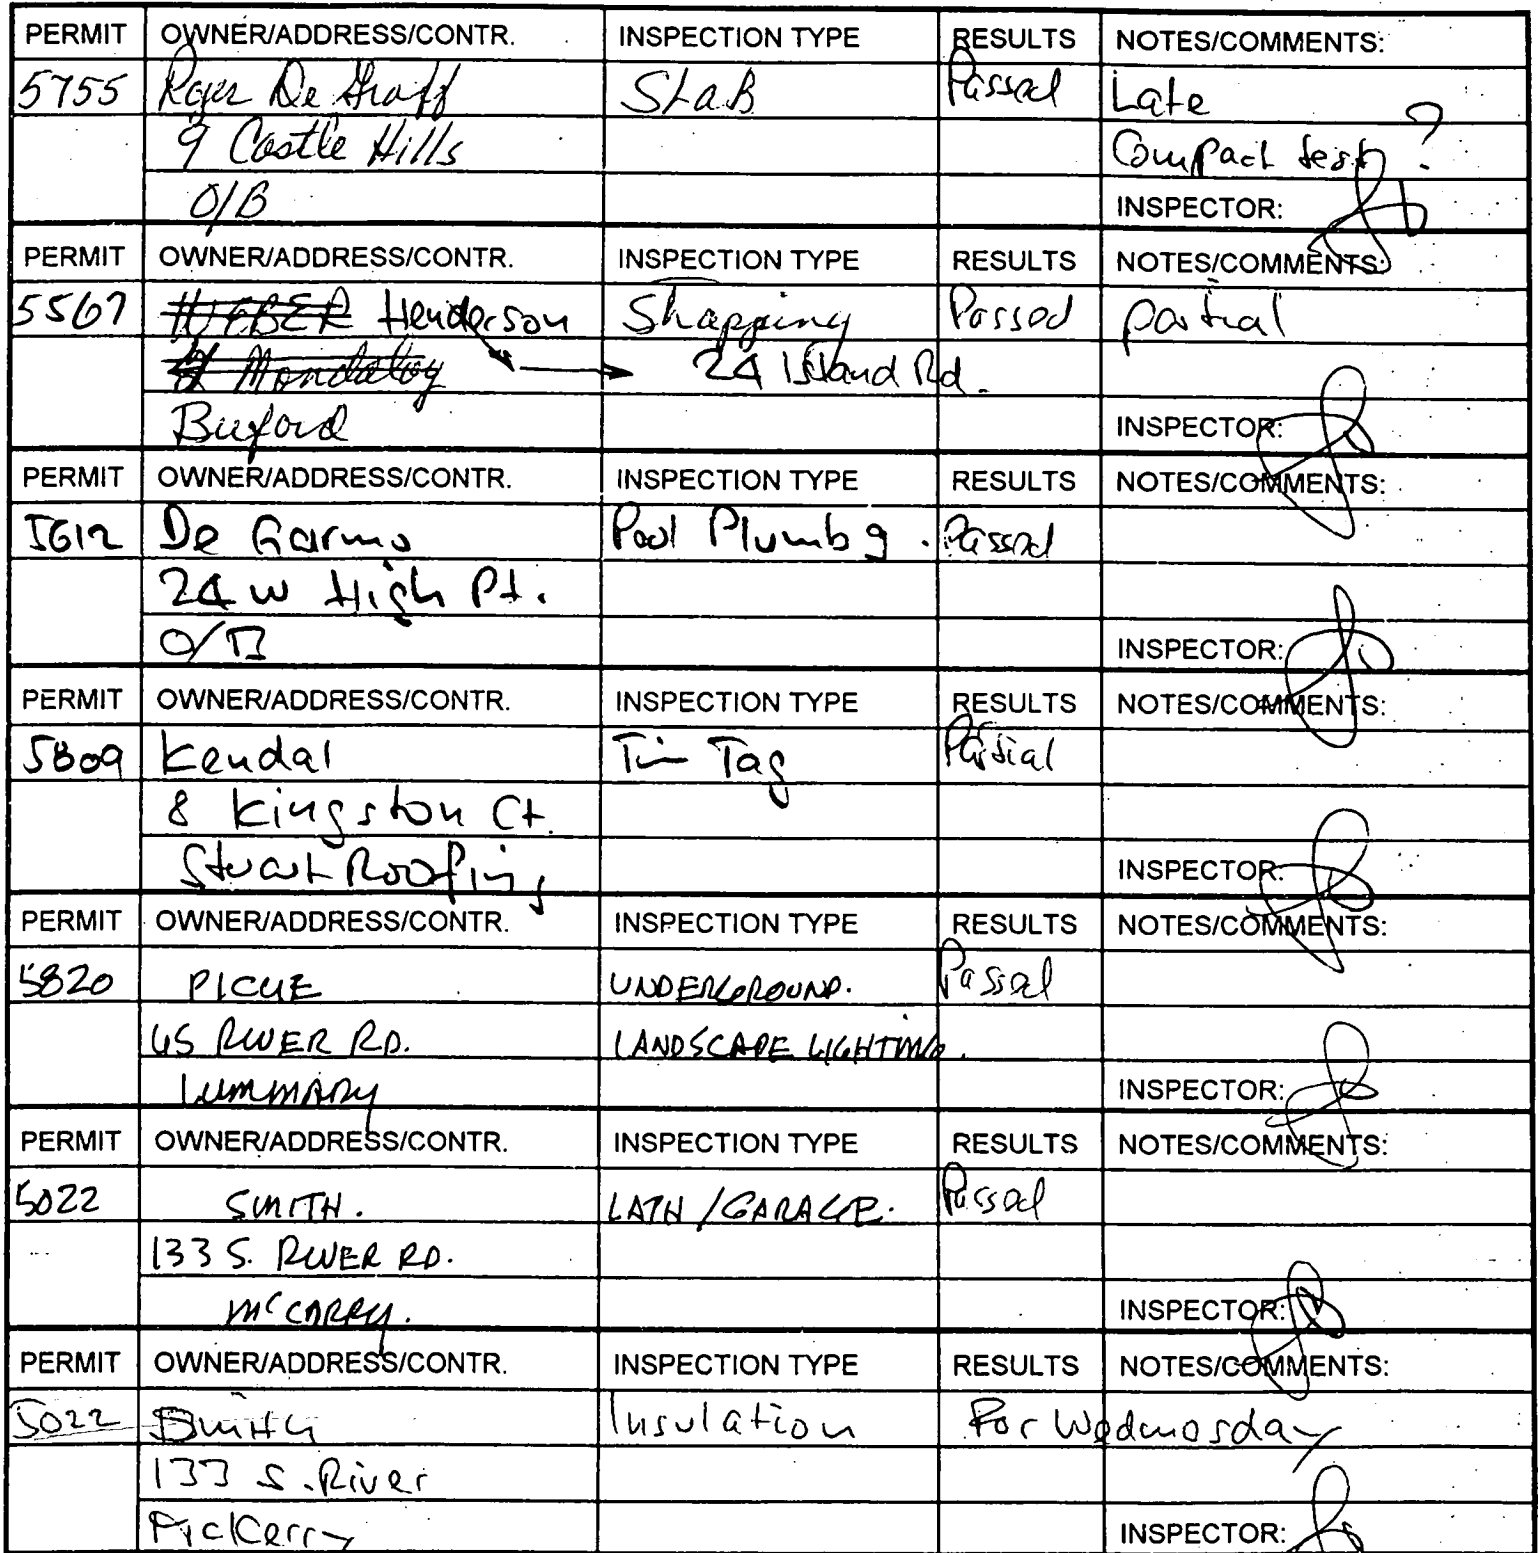 PERMIT OWNER/ADDRESS/CONTR. INSPECTION TYPE RESULTS NOTES/COMMENTS:
5755 Roger De Graff SLaB Passed Late
9 Castle Hills Compact test?
O/B INSPECTOR:
PERMIT OWNER/ADDRESS/CONTR. INSPECTION TYPE RESULTS NOTES/COMMENTS:
5567 HUBER Henderson Passed partial
Mandalay 24 Island Rd.
Buford INSPECTOR:
PERMIT OWNER/ADDRESS/CONTR. INSPECTION TYPE RESULTS NOTES/COMMENTS:
5612 De Garmo Pool Plumbg. Passed
24 W High Pt.
O/B INSPECTOR:
PERMIT OWNER/ADDRESS/CONTR. INSPECTION TYPE RESULTS NOTES/COMMENTS:
5809 Kendal Tin Tag Partial
8 Kingston Ct.
Stuart Roofing INSPECTOR:
PERMIT OWNER/ADDRESS/CONTR. INSPECTION TYPE RESULTS NOTES/COMMENTS:
5820 UNDERGROUND. Passed
45 RIVER RD. LANDSCAPE LIGHTING.
INSPECTOR:
PERMIT OWNER/ADDRESS/CONTR. INSPECTION TYPE RESULTS NOTES/COMMENTS:
5022 SMITH. LATH/GARAGE. Passed
133 S. RIVER RD.
McCARRY. INSPECTOR:
PERMIT OWNER/ADDRESS/CONTR. INSPECTION TYPE RESULTS NOTES/COMMENTS:
5022 Smith Insulation For Wednesday
133 S. River
INSPECTOR: